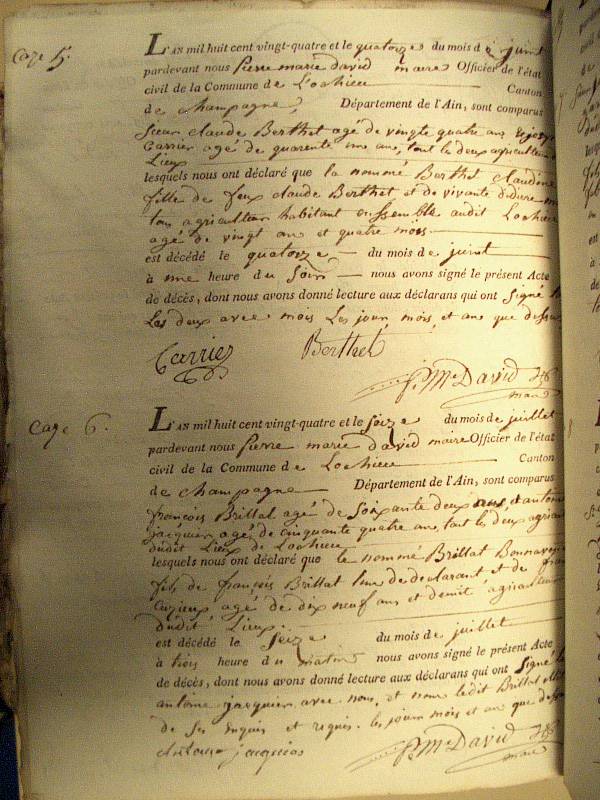 Cage 5.
L'AN mil huit cent vingt-quatre et le quatorze du mois de juint
pardevant nous pierre marie david maire Officier de l'état
civil de la Commune de Lochieu Canton
de champagne, Département de l'Ain, sont comparus
Sieur claude Berthet agé de vingte quatre ans
Carrier agé de quarente une ans, tout le deux agriculteur
Lieux
lesquels nous ont déclaré que la nommé Berthet claudine
fille de feux claude Berthet et de vivante
agriculteur habitant enssemble audit Lochieu
agé de vingt ans et quatre mois.
est décédé le quatorze du mois de juint
à une heure du Soir nous avons signé le présent Acte
de décès, dont nous avons donné lecture aux déclarans qui ont Signé
Les deux avec nous Les jour, mois, et an que dessus
Carrier Berthet
P. Me David
maire
Cage 6.
L'AN mil huit cent vingt-quatre et le Seize du mois de juillet
pardevant nous pierre marie david maire Officier de l'état
civil de la Commune de Lochieu Canton
de champagne Département de l'Ain, sont comparus
françois Brillat agé de Soixante deux ans, et antoine
jacquier agé de cinquante quatre ans, tout les deux
dudit Lieux de Lochieu
lesquels nous ont déclaré que le nommé Brillat
fils de françois Brillat l'un de declarant et de
agé de dix neuf ans et demit, agriculteur
dudit Lieux.
est décédé le Seize du mois de juillet
à trois heure du matin nous avons signé le présent Acte
de décès, dont nous avons donné lecture aux déclarans qui ont Signé
antoine jacquier avec nous, et nom ledit Brillat
de Ses Enquis et requis. les jours mois et an que dessus
antoine jacquier
P. Me David
maire